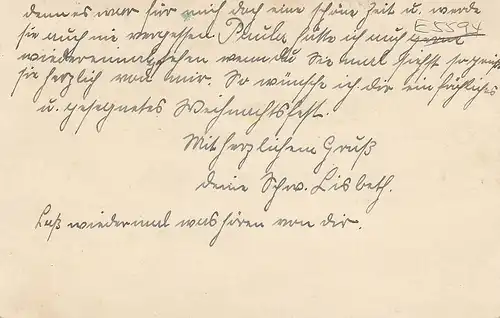 denn es war für mich doch eine schöne Zeit u. werde
E 5594
sie auch nie vergessen. Paula hätte ich auch gerne
wiedereinmal sehen wenn du sie mal siehst so grüße
sie herzlich von mir. So wünsche ich dir ein fröhliches
u. gesegnetes Weihnachtsfest.
Mit herzlichem Gruß
deine Schw. Lisbeth.
Laß wiedermal was hören von dir.